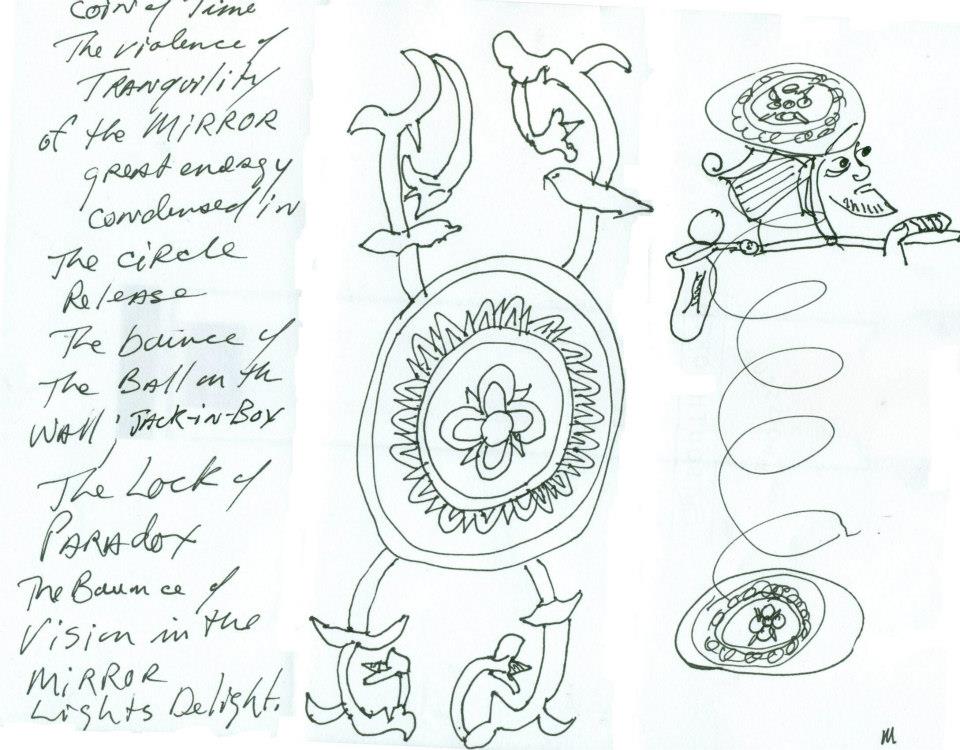 COIN of Time
The violence of
TRANQUILITY
of the MIRROR
great enedgy
condensed in
The CIRCLE
Release
The bounce of
The Ball on th
Wall; JACK-IN-BOX
The Lock of
PARADOX
The Bounce of
Vision in the
MIRROR
Lights Delight.
M